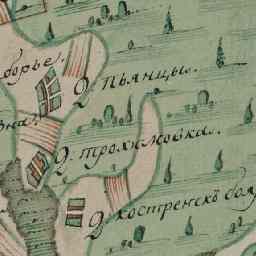 борье.
Д. пьянцы.
Д. трохимовка.
Д костренскъ боя